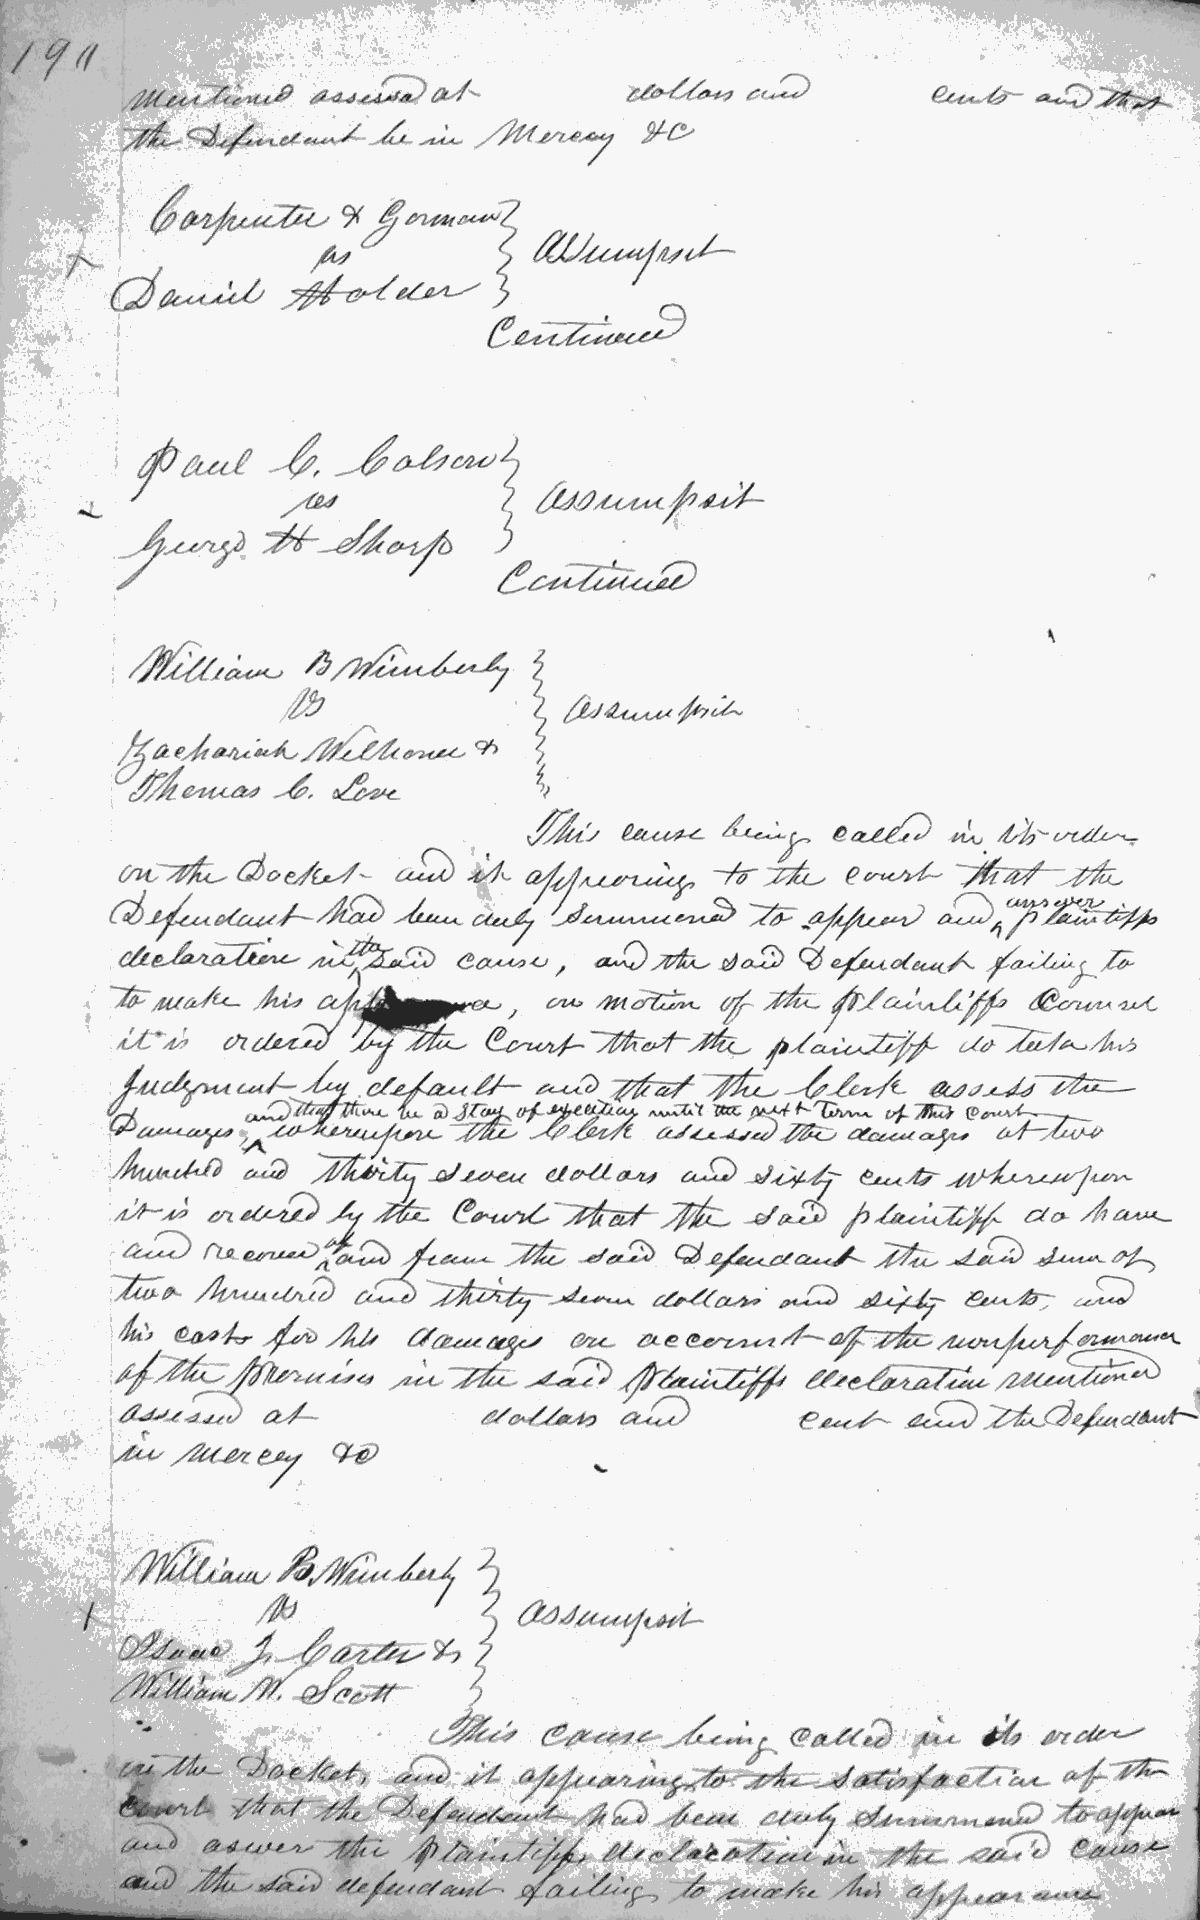 1911
mentioned assessed at dollars and cents and that
the Defendant be in Mercey &C
Carpenter & Gorman
vs
Assumpsit
Daniel Holder
Continued
Paul C. Colson
vs
Assumpsit
George H Sharp
Continued
William B Wimberly
VS
Assumpsit
Zachariah Welhoner &
Thomas C. Love
This cause being called in its order
on the Docket and it appearing to the court that the
answer
Defendant had been duly Summoned to appear and plaintiffs
the
declaration in said cause, and the said Defendant failing to
to make his , on motion of the Plaintiffs Counsel
it is ordered by the Court that the plaintiff do take his
Judgment by default and that the Clerk assess the
and that there be a Stay of execution until the next Term of this Court
Damages, whereupon the Clerk assessed the damages at two
hundred and thirty seven dollars and sixty cents whereupon
it is ordered by the Court that the said plaintiff do have
of
and recover and from the said Defendant the said sum of
two hundred and thirty seven dollars and sixty cents, and
his costs for his damages on account of the nonperformance
of the Promises in the said Plaintiffs declaration mentioned
assessed at dollars and cent and the Defendant
in Mercey &C
William B. Wimberly
VS
Assumpsit
Isaac J. Carter &
William W. Scott
This cause being called in its order
on the Docket, and it appearing to the satisfaction of the
Court that the Defendant had been duly Summoned to appear
and aswer the Plaintiffs declaration in the said cause
and the said defendant failing to make his appearance